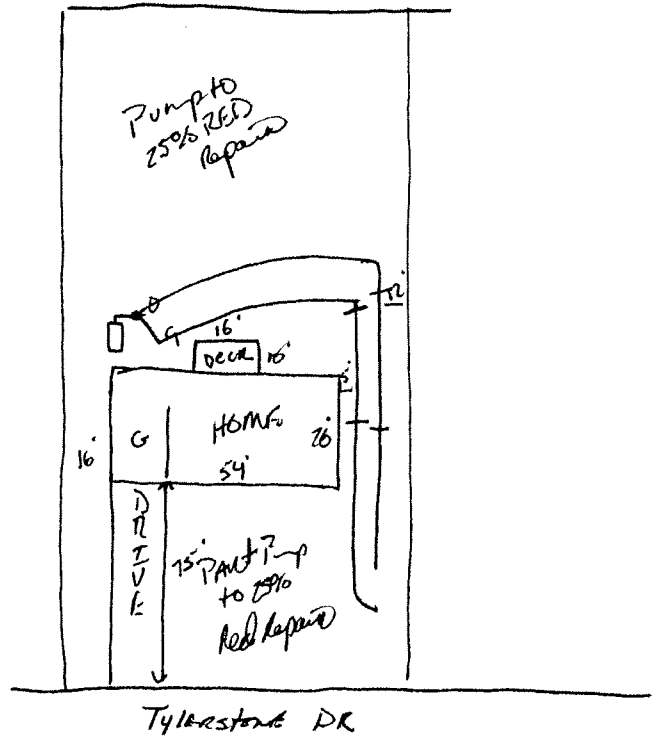 Pump to
25% RED
Repair
12'
16'
DECK 16'
G HOME 26'
16'
54'
DRIVE
75'
Part Pump
to 25%
Red Repair
TYLERSTONE DR